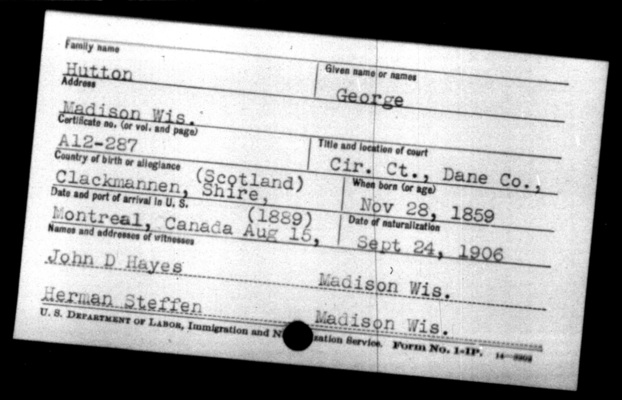 Family name
Given name or names
Hutton
George
Address
Madison Wis.
Certificate no. (or vol. and page)
Title and location of court
A12-287
Cir. Ct., Dane Co.,
Country of birth or allegiance
When born (or age)
Clackmannen, (Scotland) Shire,
Nov 28, 1859
Date and port of arrival in U. S.
Date of naturalization
Montreal, Canada (1889) Aug 15,
Sept 24, 1906
Names and addresses of witnesses
John D Hayes Madison Wis.
Herman Steffen Madison Wis.
U. S. DEPARTMENT OF LABOR, Immigration and N sation Service. Form No. 1-IP.